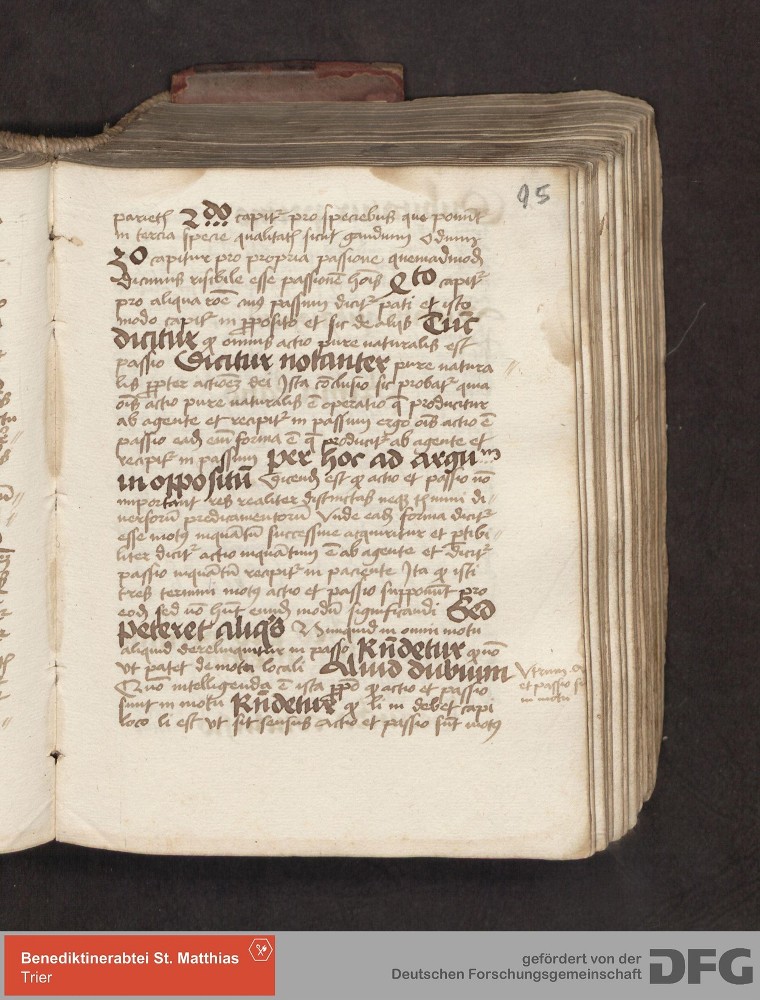 95
parietis 2do capitur pro speciebus que ponuntur
in tercia specie qualitatis sicut gaudium odium
30 capitur pro propria passione quemadmodum
dicimus risibile esse passionem hois 4to capitur
pro aliqua roe cuius passum dicitur pati et isto
modo capitur in proposito et sic de aliis Tunc
dicitur qd omnis actio pure naturalis est
passio Dicitur notanter pure natura
lis propter actionem dei Ista conclusio sic probatur quia
ois actio pure naturalis e operatio que producitur
ab agente et recipitur in passum ergo ois actio e
passio eadem enim forma e que producitur ab agente et
recipitur in passum per hoc ad argum
in oppositum dicendum est qd actio et passio non
important res realiter distinctas neque termini di
uersorum predicamentorum Vnde eadem forma dicitur
esse motus inquantum successiue acquiritur et partibi
liter dicitur actio inquantum e ab agente et dicitur
passio inquantum recipitur in paciente Ita qd isti
tres termini motus actio et passio supponunt pro
eodem sed non habent eundem modum significandi Sed
peteret aliquis Numquid in omni motu
aliquid derelinquitur in passo Rndetur qd non
vt patet de motu locali Aliud dubium
Quomodo intelligenda e ista propositio qd actio et passio
sunt in motu Rndetur qd li in debet capi
loco li est vt sit sensus actio et passio sunt motus
Vtrum
et passio
in motu
Benediktinerabtei St. Matthias
Trier
gefördert von der
Deutschen Forschungsgemeinschaft DFG